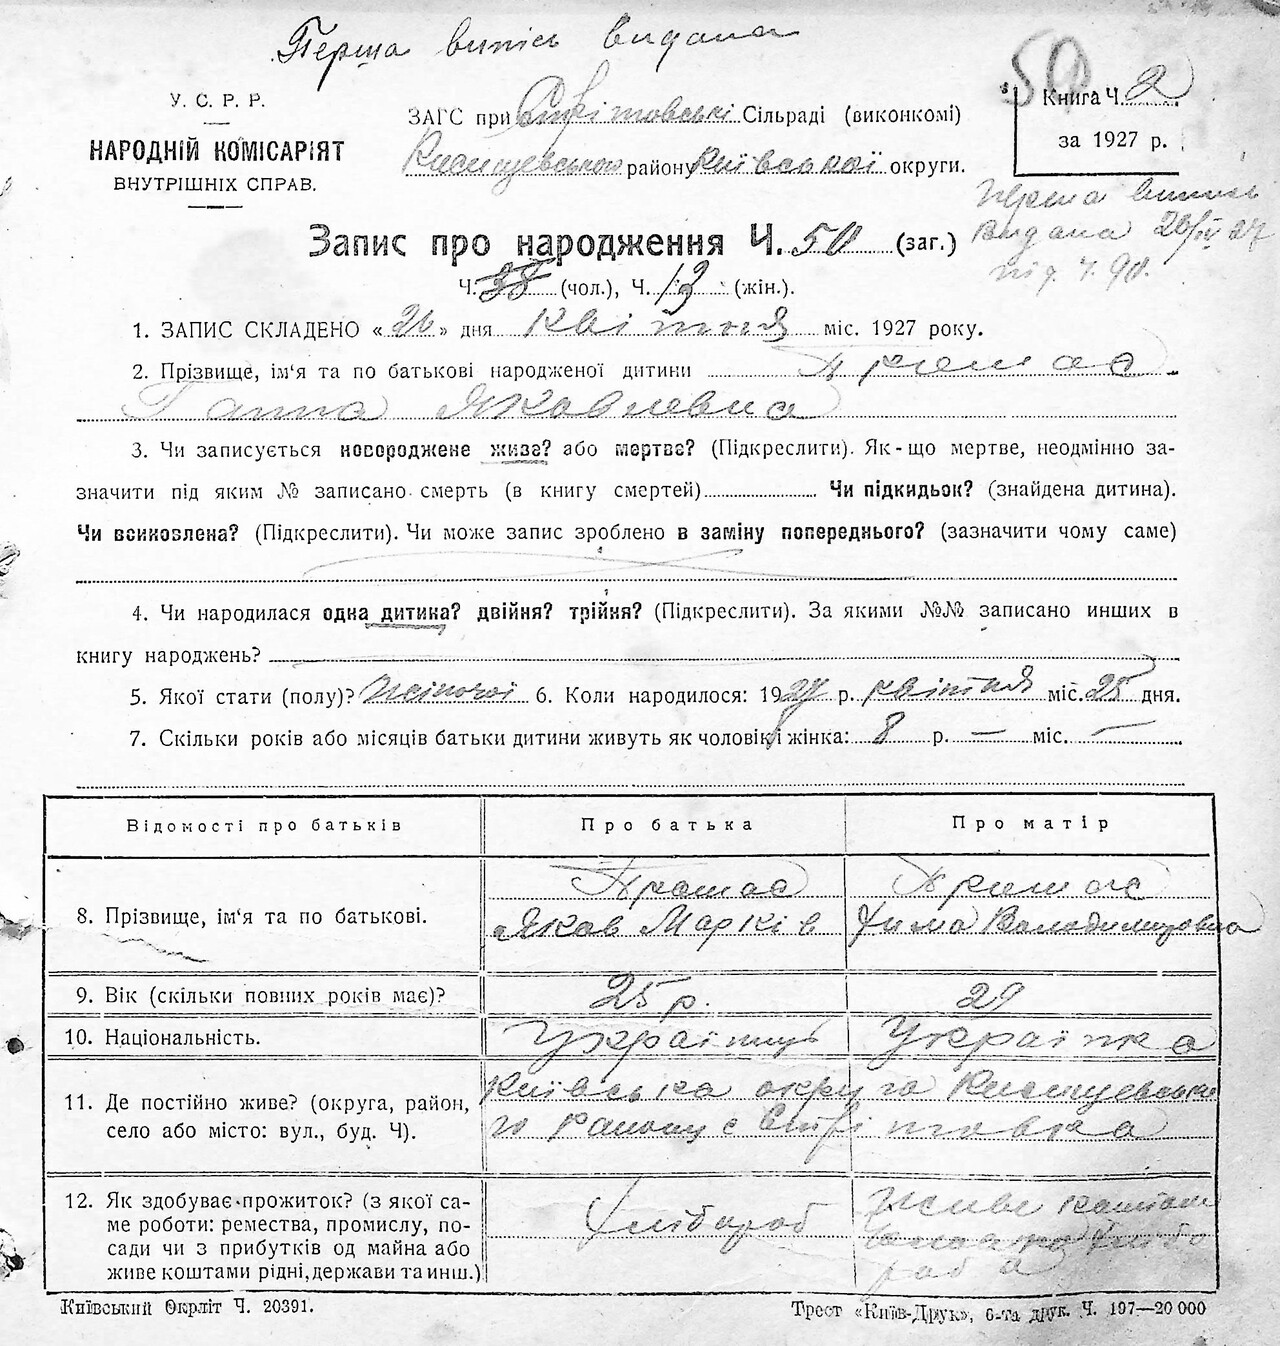 Перша випись видана
У. С. Р. Р.
НАРОДНІЙ КОМІСАРІЯТ
ВНУТРІШНІХ СПРАВ.
ЗАГС при Стрітовські Сільраді (виконкомі)
району Київської округи.
50
Книга Ч. 2
за 1927 р.
Перша випись
видана 26/IV 27
під ч. 90.
Запис про народження Ч. 50 (заг.)
Ч. (чол.), Ч. 13 (жін.).
1. ЗАПИС СКЛАДЕНО « 26 » дня квітня міс. 1927 року.
2. Прізвище, ім'я та по батькові народженої дитини
Ганна Яковлевна
3. Чи записується новороджене живе? або мертве? (Підкреслити). Як-що мертве, неодмінно за-
значити під яким № записано смерть (в книгу смертей) Чи підкидьок? (знайдена дитина).
Чи всиновлена? (Підкреслити). Чи може запис зроблено в заміну попереднього? (зазначити чому саме)
4. Чи народилася одна дитина? двійня? трійня? (Підкреслити). За якими №№ записано инших в
книгу народжень?
5. Якої стати (полу)? жіночої 6. Коли народилося: 1927 р. квітня міс. 25 дня.
7. Скільки років або місяців батьки дитини живуть як чоловік і жінка: 8 р. — міс. —
Відомості про батьків
Про батька
Про матір
8. Прізвище, ім'я та по батькові.
Яков Марків
Володимировна
9. Вік (скільки повних років має)?
25 р.
29
10. Національність.
Українець
Українка
11. Де постійно живе? (округа, район,
село або місто: вул., буд. Ч).
Київська округа
го району с Стрітовка
12. Як здобуває прожиток? (з якої са-
ме роботи: ремества, промислу, по-
сади чи з прибутків од майна або
живе коштами рідні, держави та инш.)
Хлібороб
Живе коштам
хлібо
роба
Київський Окрліт Ч. 20391.
Трест «Київ-Друк», 6-та друк. Ч. 197—20 000